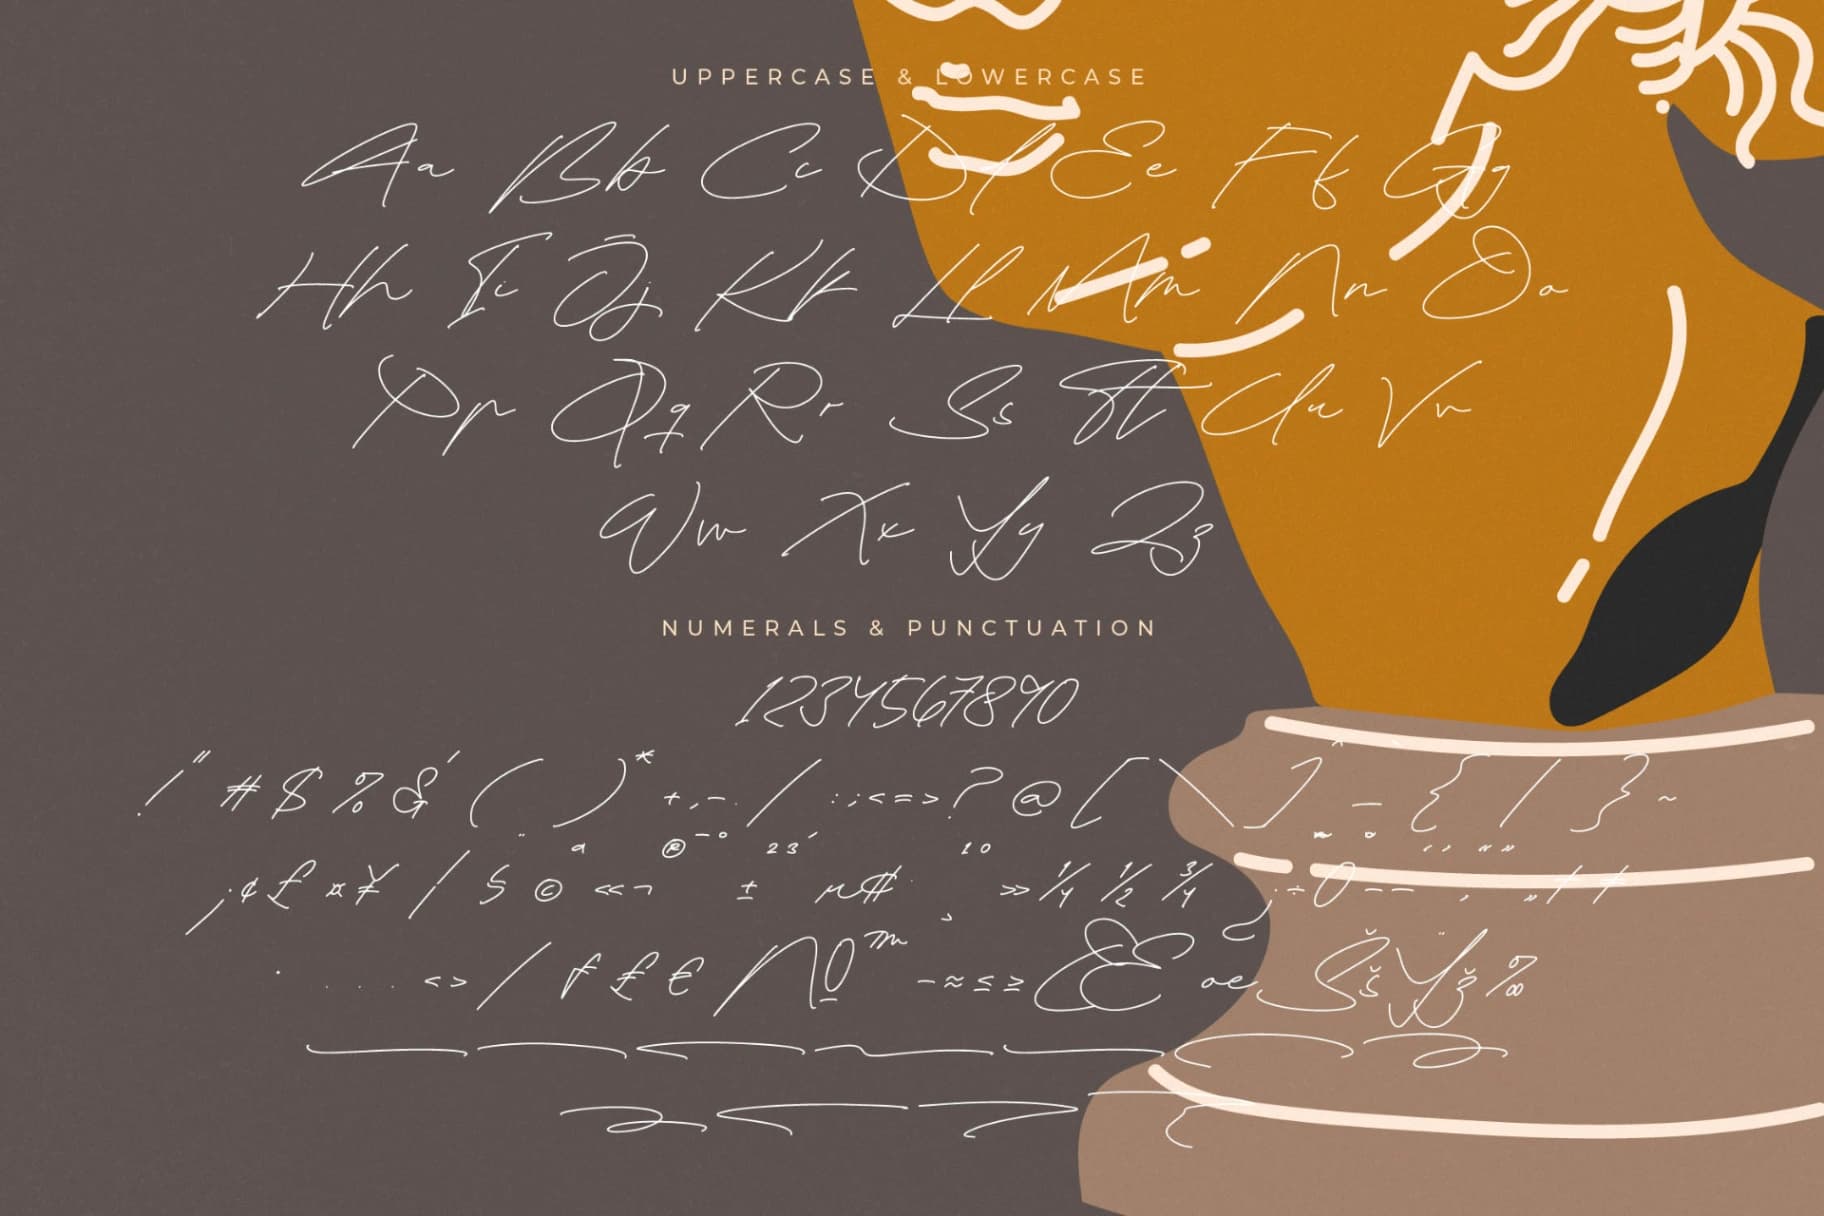 UPPERCASE & LOWERCASE
Aa Bb Cc Dd Ee Ff Gg
Hh Ii Jj Kk Ll Mm Nn Oo
Pp Qq Rr Ss Tt Uu Vv
Ww Xx Yy Zz
NUMERALS & PUNCTUATION
1234567890
! " # $ % & ' ( ) * + , - . / : ; < = > ? @ [ \ ] ^ _ ` { | } ~
¡ ¢ £ ¤ ¥ ¦ § ¨ © ª « ¬ ® ¯ ° ± ² ³ ´ µ ¶ · ¸ ¹ º » ¼ ½ ¾ ¿ ÷ – —
< > / ƒ £ € № ™ − ≈ ≤ ≥ Œ œ Š š Ÿ ž ‰